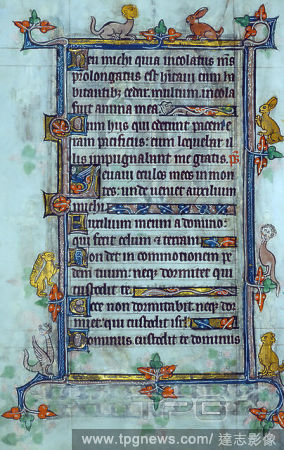 Heu michi quia incolatus m̄s
prolongatus est hitaui cum ha
bitantib; cedar. multum incola
fuit anima mea
Cum hiis qui oderunt pacem e
ram pacificus: cum loquebar il
lis impugnabunt me gratis. p̄s
Leuaui oculos meos in mon
tes: unde ueniet auxilium
michi
Auxilium meum a domino:
qui fecit celum & terram
Non det in commotionem pe
dem tuum: neq; dormitet qui
custodit te
Ecce non dormitabit neq; dor
miet: qui custodit isrl
Dominus custodit te dominus
www.tpgnews.com/ 達志影像